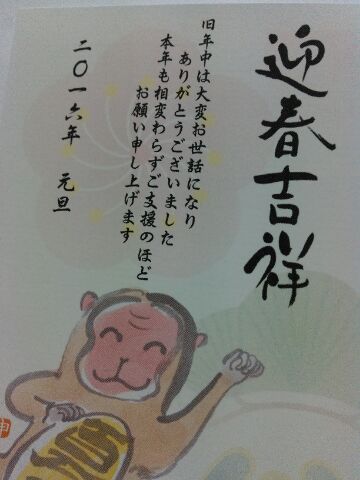 迎春吉祥
旧年中は大変お世話になり
ありがとうございました
本年も相変わらずご支援のほど
お願い申し上げます
二〇一六年 元旦
申